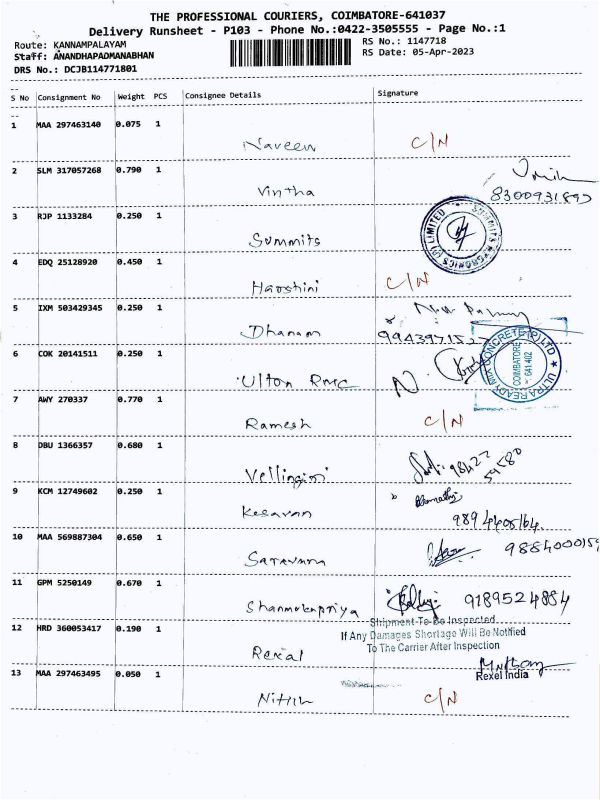 THE PROFESSIONAL COURIERS, COIMBATORE-641037
Delivery Runsheet - P103 - Phone No.:0422-3505555 - Page No.:1
Route: KANNAMPALAYAM RS No.: 1147718
Staff: ANANDHAPADMANABHAN RS Date: 05-Apr-2023
DRS No.: DCJB114771801
S No Consignment No Weight PCS Consignee Details Signature
1 MAA 297463140 0.075 1
Naveen C/N
2 SLM 317057268 0.790 1
Vintha 8300931897
3 RJP 1133284 0.250 1
Summits
SUMMITS HYGRONICS (P) LIMITED
4 EDQ 25128920 0.450 1
Harshini C/N
5 IXM 503429345 0.250 1
Dhanam 9943971527
6 COK 20141511 0.250 1
Ulton RMC
ULTRA READY MIX CONCRETE (P) LTD
COIMBATORE
641 402
7 AWY 270337 0.770 1
Ramesh C/N
8 DBU 1366357 0.680 1
Vellingiri 98422
54580
9 KCM 12749602 0.250 1
Kesavan
9894405164
10 MAA 569887304 0.650 1
Saravana
11 GPM 5250149 0.670 1
Shanmukapriya 9189524884
Shipment To Be Inspected
12 HRD 360053417 0.190 1
If Any Damages Shortage Will Be Notified
To The Carrier After Inspection
Rexal
Rexel India
13 MAA 297463495 0.050 1
Nitish C/N